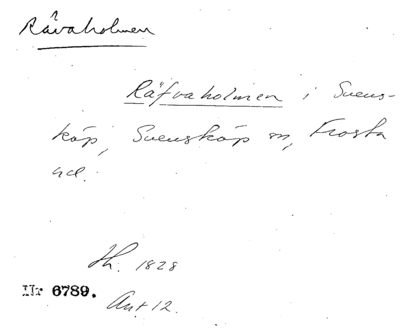 Rävaholmen
Räfvaholmen i Svens-
köp, Svensköp sn, Frosta
hd.
Hh. 1828
Nr 6789.
Ant 12.